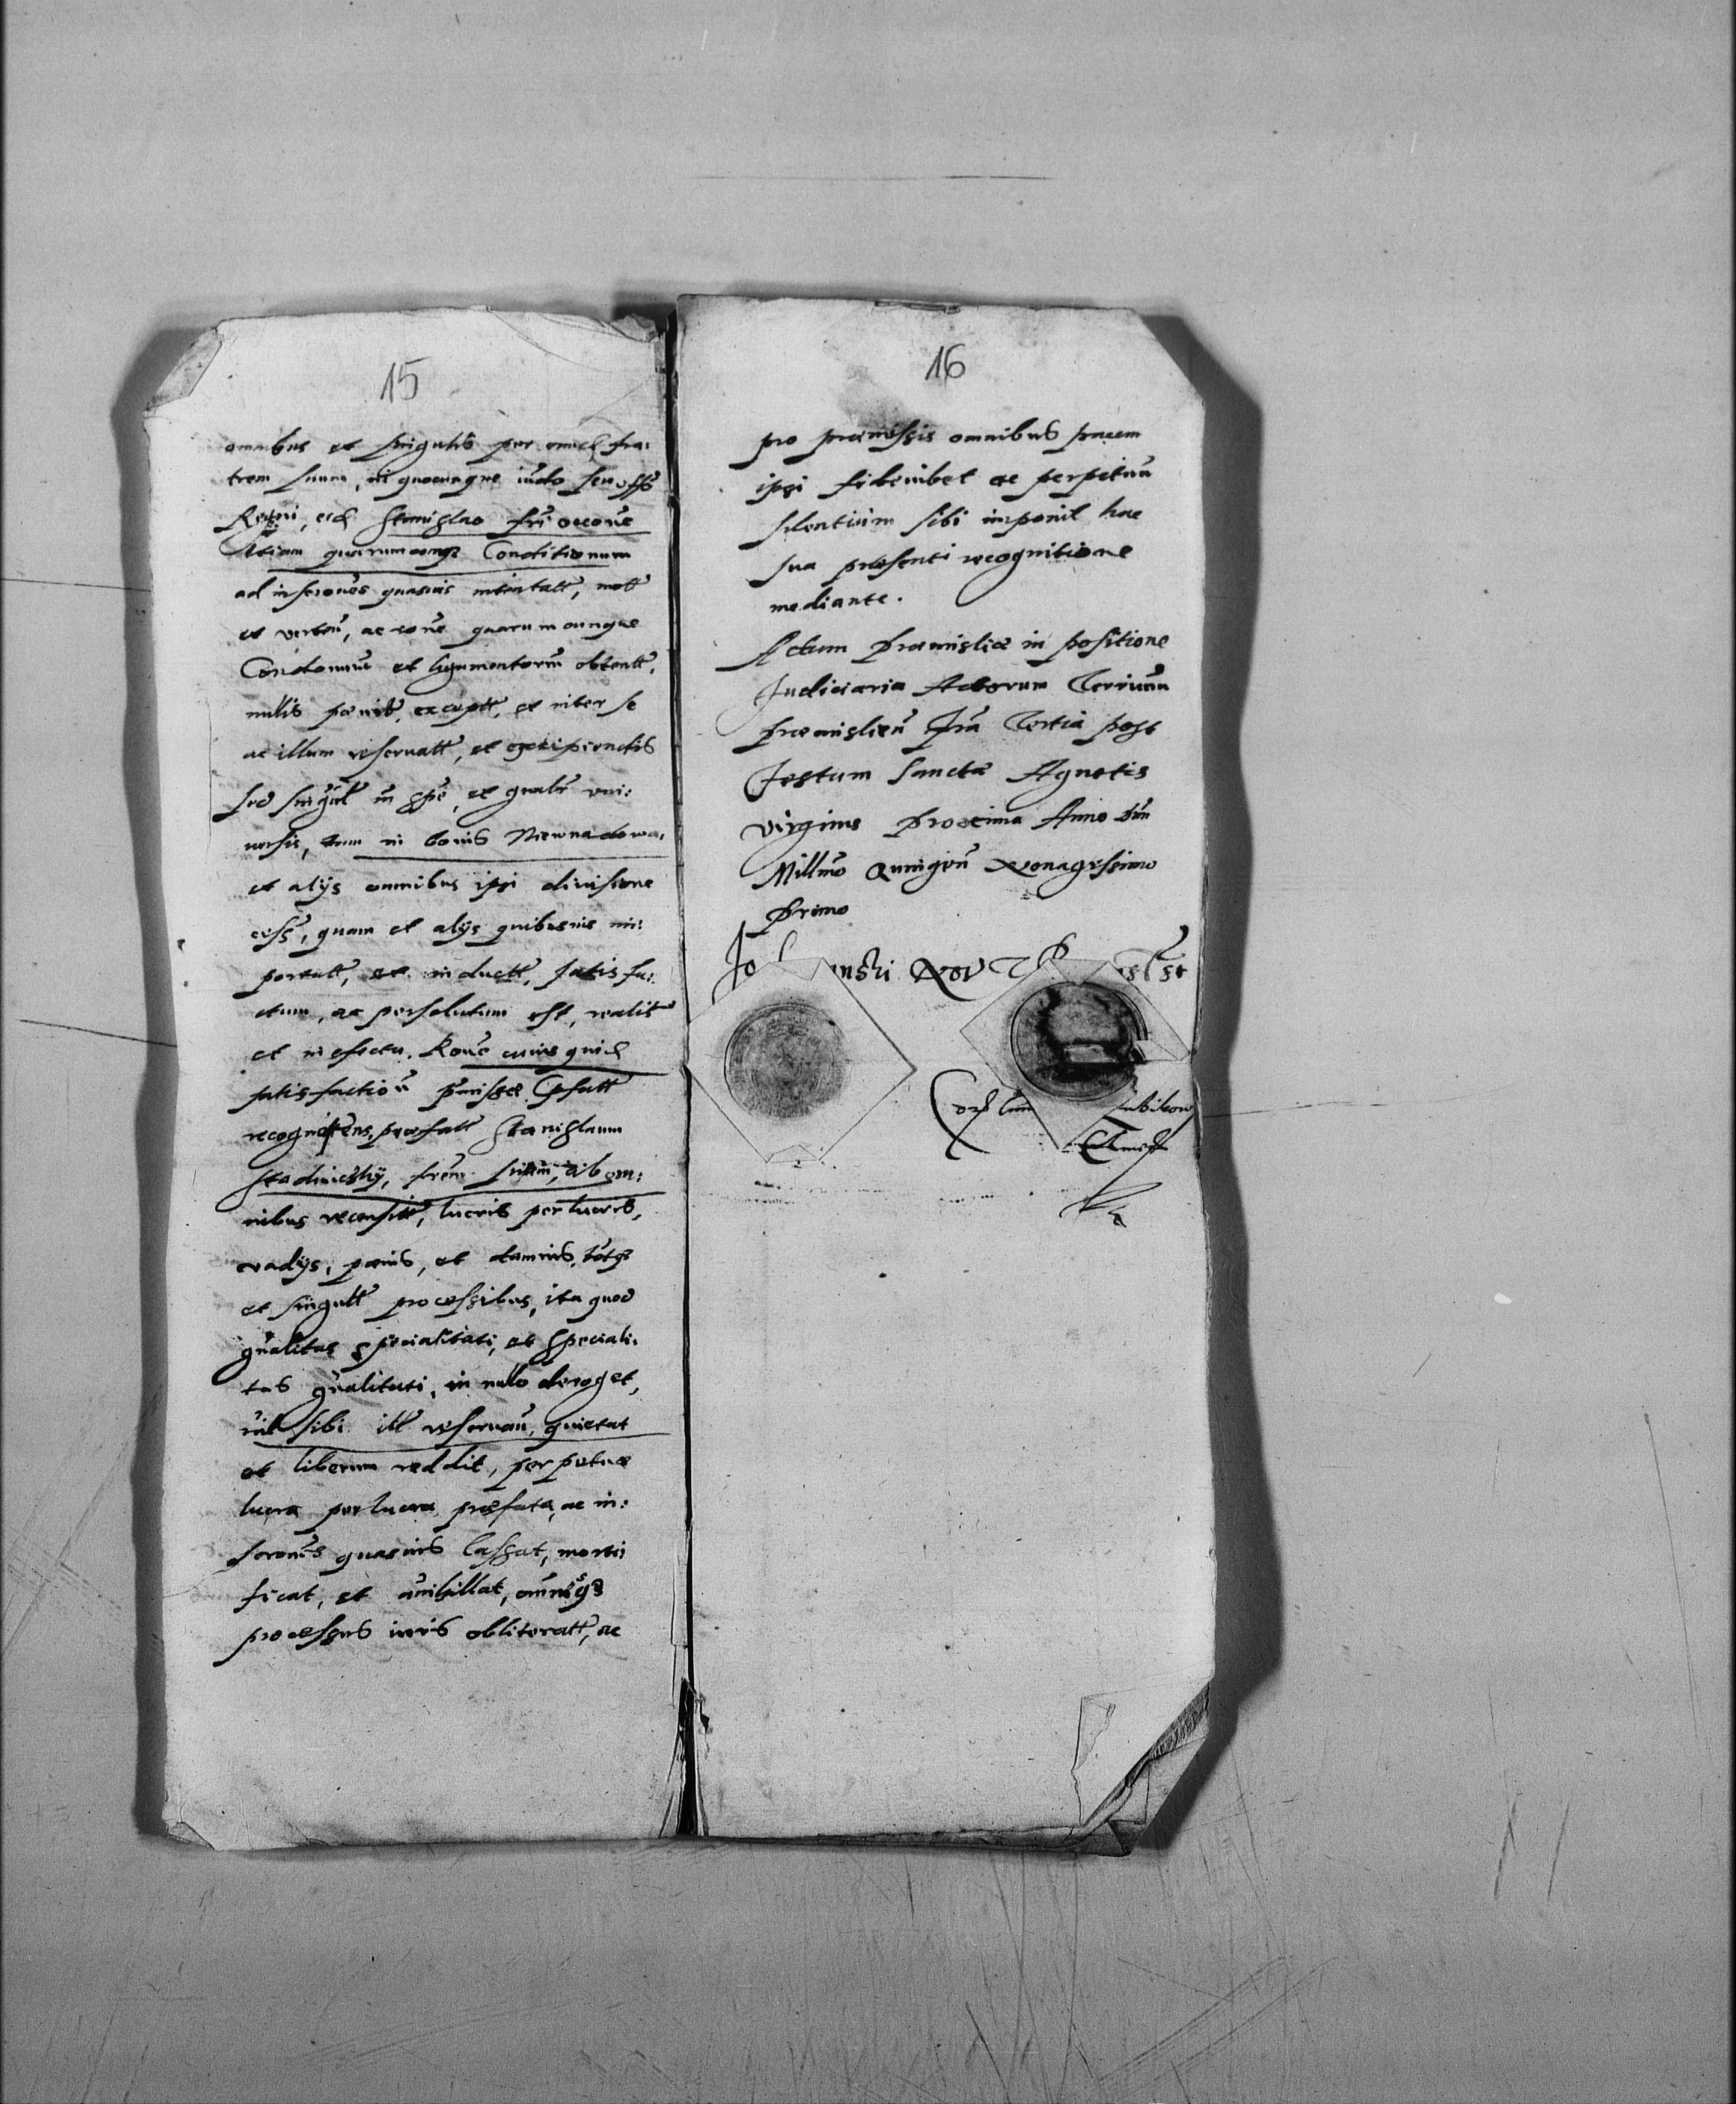 15
omnibus et singulis per eund fra:
trem suum, in quocunque iudo seu offo
Regni, eid Stanislao fri occone
Etiam quarumcunqz Conditionum
ad inscrones quasuis intentatt, mott
et verten, ac rone quarumcunque
Condonum et ligamentorum obtentt,
nullis poenis, exceptt, et inter se
ac illum reseruatt, et excipiendis
sed singul in spe, et gnalr vni:
uersis, tum in bonis Niewnadowa,
et alijs omnibus ipsi diuisione
cess, quam et alijs quibusuis im:
portatt, et inductt, satis fa:
ctum, ac persolutum est, realit
et in efectu. Rone cuius quid
satisfaction pmissae pfatt
recognoscens, praefatt Stanislaum
Stadniczky, frem suum, ab om:
nibus recensitt, lucris perlucris,
vadijs, poenis, et damnis, totqz
et singult processibus, ita quod
gnalitas specialitati, et speciali:
tas gnalitati, in nullo deroget,
nil sibi ill reseruan, quietat
et liberum reddit, perpetuae
lucra perlucra praefata, ac in:
scrones quasuis Cassat, morti
ficat, et annihillat, omnesqz
processus iuris obliteratt, ac
16
pro praemissis omnibus pacem
ipsi fideiubet ac perpetuum
silentium sibi imponit hac
sua praesenti recognitione
mediante.
Actum Praemisliae in positione
Judiciaria Actorum Terrium
Praemislien fra Tertia post
Festum Sanctae Agnetis
virginis Proxima Anno Dni
Millmo Quingen Nonagessimo
Primo